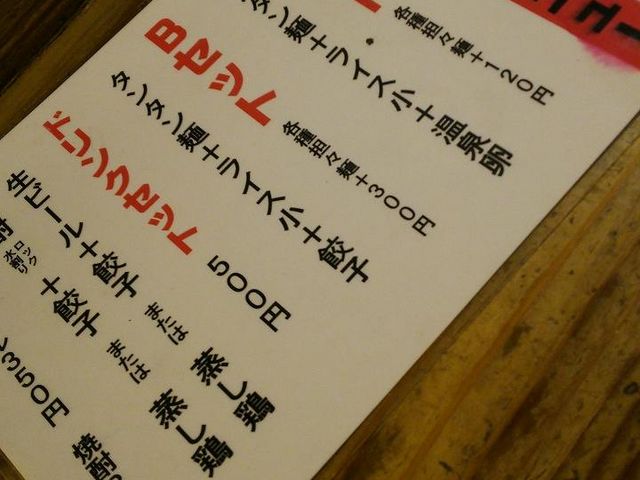 ニュー
各種担々麺+120円
タン麺+ライス小+温泉卵
Bセット
各種担々麺+300円
タンタン麺+ライス小+餃子
ドリンクセット
500円
生ビール+餃子 または 蒸し鶏
酎 ロック 水割り +餃子 または 蒸し鶏
350円
焼酎